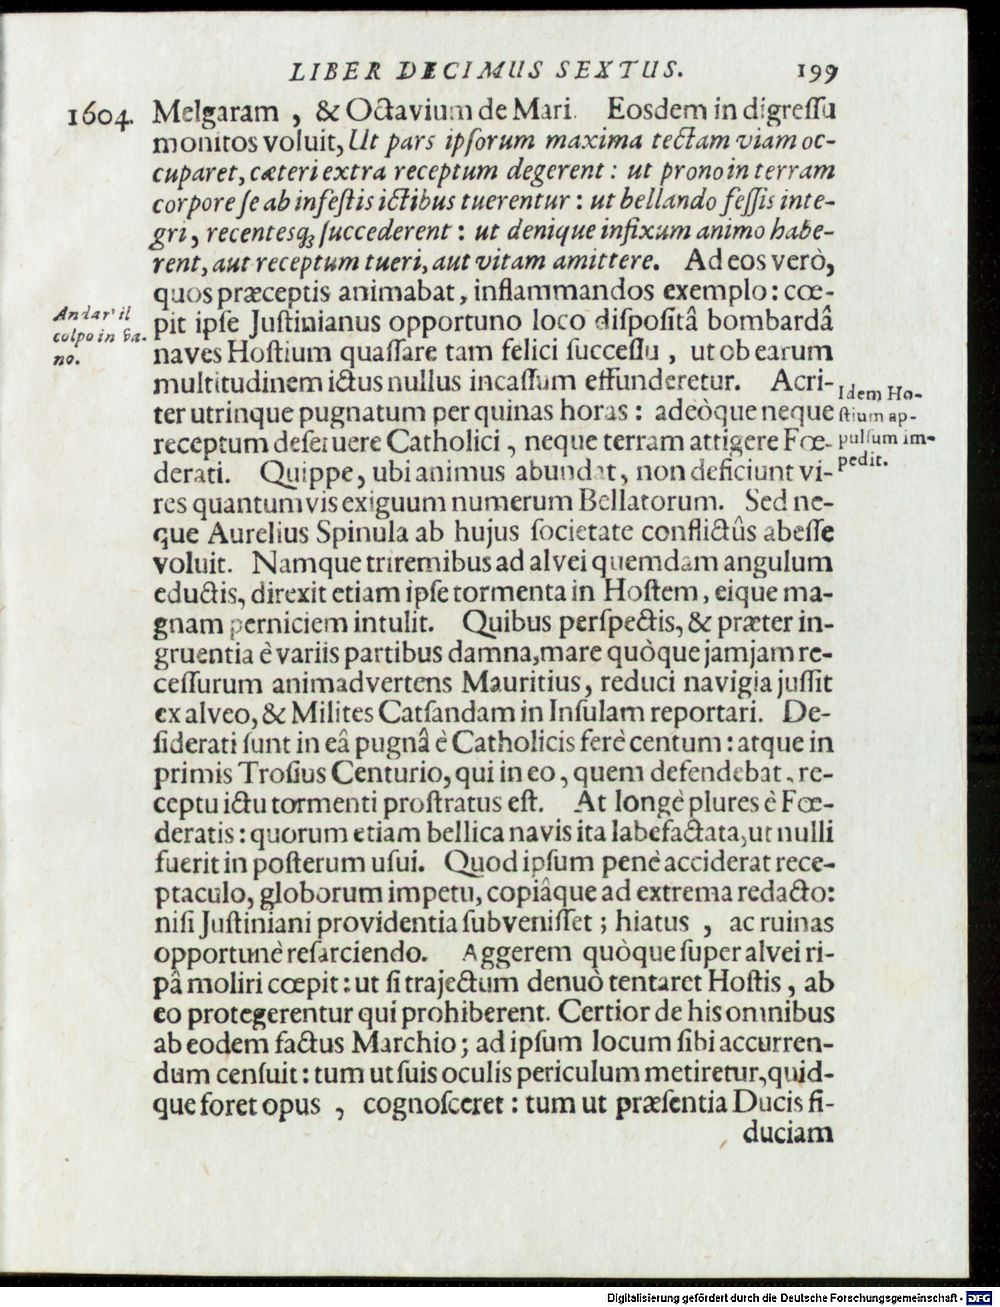 LIBER DECIMUS SEXTUS. 199
1604. Melgaram , & Octavium de Mari. Eosdem in digreſſu
monitos voluit, Ut pars ipſorum maxima tectam viam oc-
cuparet, cæteri extra receptum degerent : ut prono in terram
corpore ſe ab infeſtis ictibus tuerentur : ut bellando feſſis inte-
gri, recentesq; ſuccederent : ut denique infixum animo habe-
rent, aut receptum tueri, aut vitam amittere. Ad eos verò,
quos præceptis animabat, inflammandos exemplo : cœ-
Andar' il
colpo in va-
no.
pit ipſe Juſtinianus opportuno loco diſpoſitâ bombardâ
naves Hoſtium quaſſare tam felici ſucceſſu , ut ob earum
multitudinem ictus nullus incaſſum effunderetur. Acri-
Idem Ho-
ſtium ap-
pulſum im-
pedit.
ter utrinque pugnatum per quinas horas : adeòque neque
receptum deſeruere Catholici , neque terram attigere Fœ-
derati. Quippe, ubi animus abundat, non deficiunt vi-
res quantumvis exiguum numerum Bellatorum. Sed ne-
que Aurelius Spinula ab hujus ſocietate conflictûs abeſſe
voluit. Namque triremibus ad alvei quemdam angulum
eductis, direxit etiam ipſe tormenta in Hoſtem, eique ma-
gnam perniciem intulit. Quibus perſpectis, & præter in-
gruentia è variis partibus damna, mare quòque jamjam re-
ceſſurum animadvertens Mauritius, reduci navigia juſſit
ex alveo, & Milites Catſandam in Inſulam reportari. De-
ſiderati ſunt in eâ pugnâ è Catholicis ferè centum : atque in
primis Troſius Centurio, qui in eo, quem defendebat, re-
ceptu ictu tormenti proſtratus eſt. At longè plures è Fœ-
deratis : quorum etiam bellica navis ita labefactata, ut nulli
fuerit in poſterum uſui. Quod ipſum penè acciderat rece-
ptaculo, globorum impetu, copiâque ad extrema redacto:
niſi Juſtiniani providentia ſubveniſſet ; hiatus , ac ruinas
opportunè reſarciendo. Aggerem quòque ſuper alvei ri-
pâ moliri cœpit : ut ſi trajectum denuò tentaret Hoſtis, ab
eo protegerentur qui prohiberent. Certior de his omnibus
ab eodem factus Marchio ; ad ipſum locum ſibi accurren-
dum cenſuit : tum ut ſuis oculis periculum metiretur, quid-
que foret opus , cognoſceret : tum ut præſentia Ducis fi-
duciam
Digitalisierung gefördert durch die Deutsche Forschungsgemeinschaft - DFG